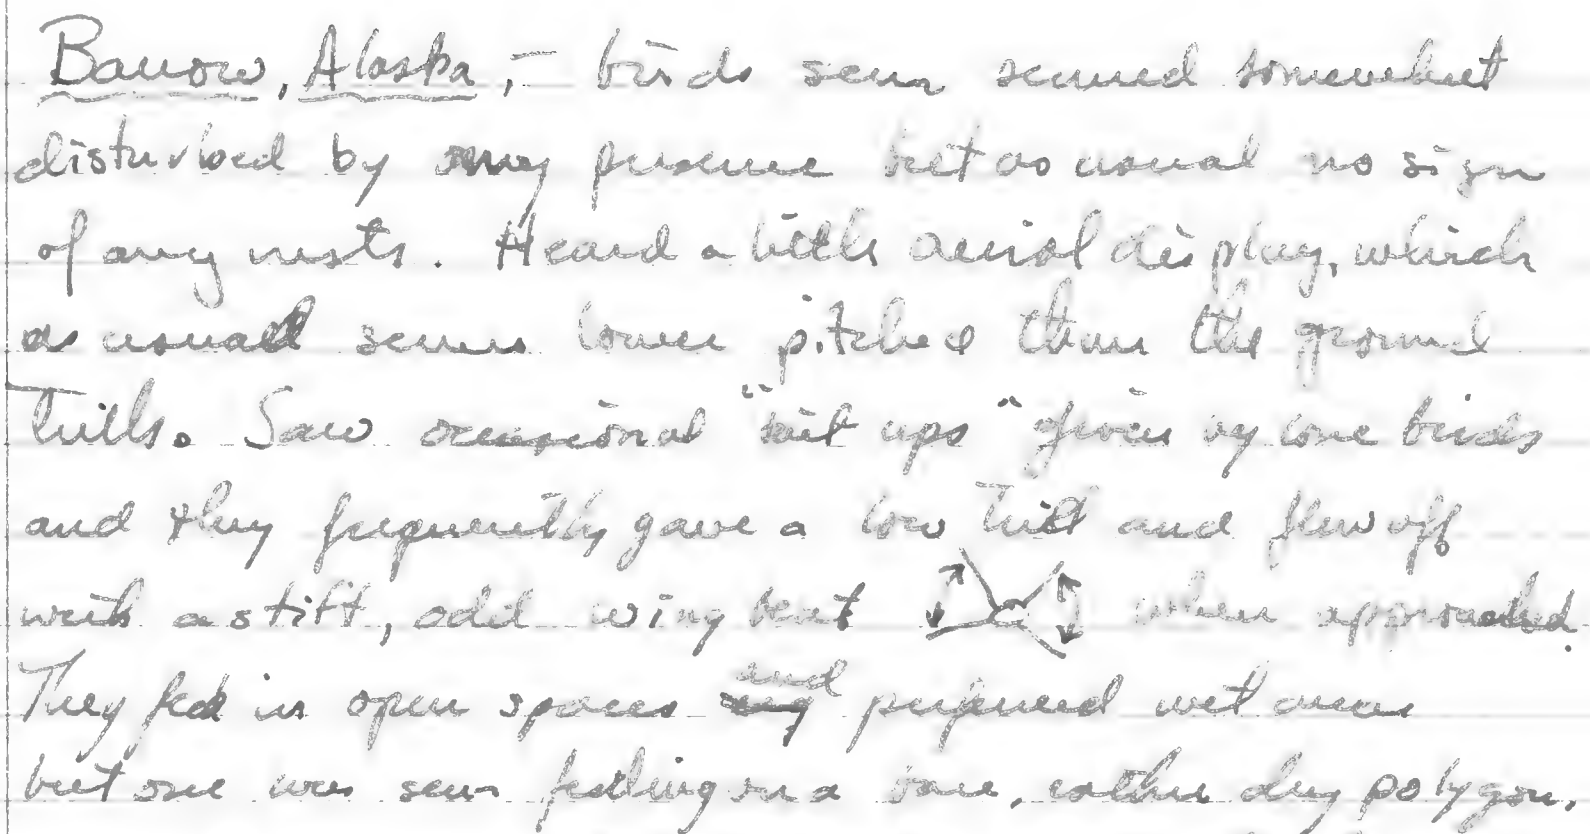 Barrow, Alaska,- birds seen seemed somewhat
disturbed by my presence but as usual no sign
of any nests. Heard a little aerial display, which
as usual seems lower pitched than the ground
trills. Saw occasional " ups" given by lone birds
and they frequently gave a low trill and flew off
with a stiff, odd wing beat when approached.
They fed in open spaces and preferred wet areas
but one was seen feeding on a bare, rather dry polygon.